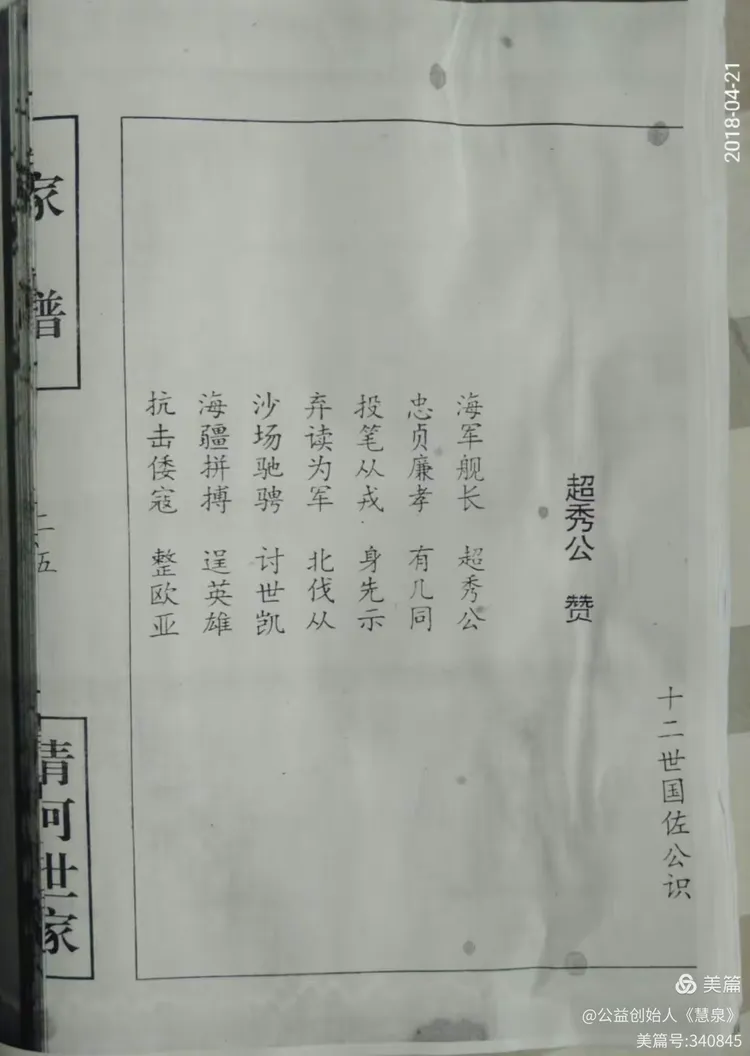 十二世国佐公识
超秀公 赞
海军舰长 超秀公
忠贞廉孝 有几同
投笔从戎 身先示
弃读为军 北伐从
沙场驰骋 讨世凯
海疆拼搏 逞英雄
抗击倭寇 整欧亚
家谱
二五
清河世家
2018-04-21
美篇
@公益创始人《慧泉》
美篇号:340845